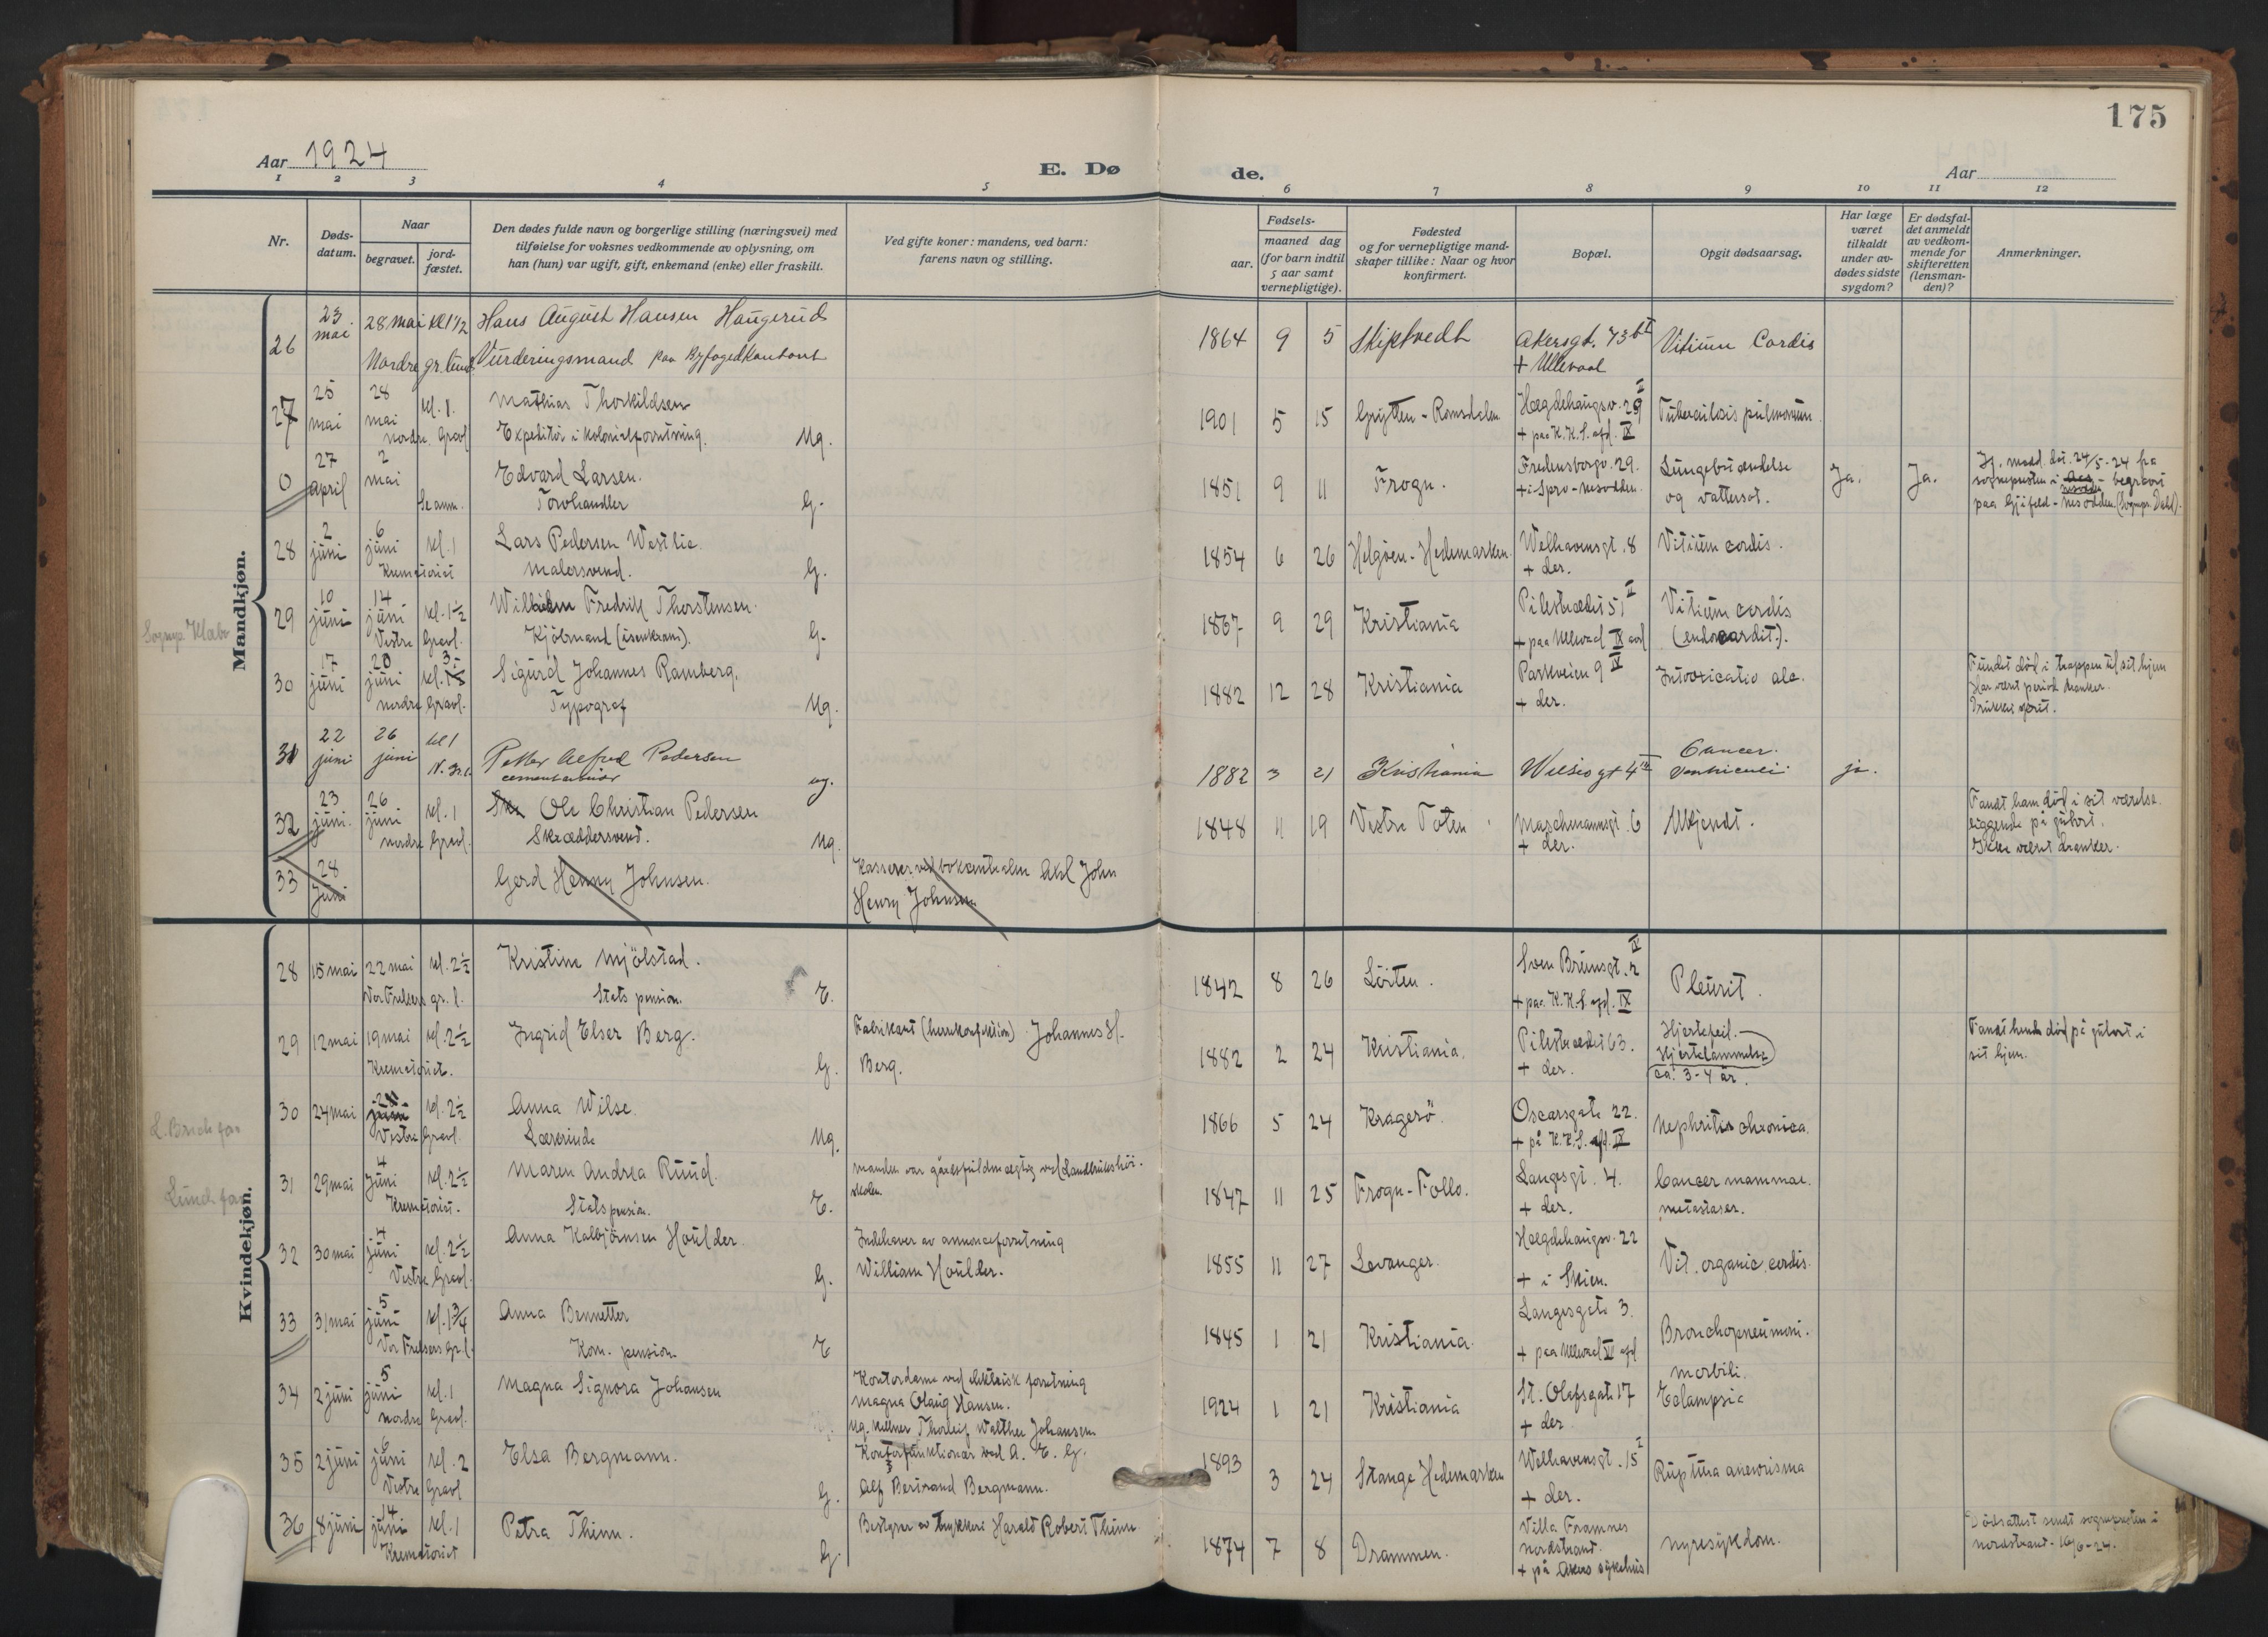 175
Aar 1924
E. Dø de.
Aar
1 2 3 4 5 6 7 8 9 10 11 12
Nr.
Døds-datum.
Naar
begravet.
jord-fæstet.
Den dødes fulde navn og borgerlige stilling (næringsvei) med
tilføielse for voksnes vedkommende av oplysning, om
han (hun) var ugift, gift, enkemand (enke) eller fraskilt.
Ved gifte koner: mandens, ved barn:
farens navn og stilling.
Fødsels-
aar. maaned dag
(for barn indtil
5 aar samt
vernepligtige).
Fødested
og for vernepligtige mand-
skaper tillike: Naar og hvor
konfirmert.
Bopæl.
Opgit dødsaarsag.
Har læge
været
tilkaldt
under av-
dødes sidste
sygdom?
Er dødsfal-
det anmeldt
av vedkom-
mende for
skifteretten
(lensman-
den)?
Anmerkninger.
Mandkjøn.
26 23 mai 28 mai kl 1 1/2 Hans August Hansen Haugerud 1864 9 5 Skiptvedt Akersgt. 73 b I Vitium Cordis
Nordre gr. lund Vurderingsmand paa Byfogedkontoret + Ullevaal
27 25 mai 28 mai kl. 1. Mathias Thorkildsen 1901 5 15 Grytten - Romsdalen Hægdehaugsv. 29 II Tuberculosis pulmonum
nordre. Gravl Expeditör i kolonialforretning. Ug. + paa K.K.S. afd. IX
0 27 april 2 mai Edvard Larsen. 1851 9 11 Frogn. Fredensborgv. 29. Lungebetændelse Ja. Ja. Ifj. medd. dat. 24/5-24 fra
Se anm. Torvhandler G. + i Spro - nesodden. og vattersot. sognepresten i nesodden - begravet
paa Gjøfeld - nesodden (sognepr. Dahl).
28 2 juni 6 juni kl. 1 Lars Pedersen Westlie. 1854 6 26 Helgöen - Hedemarken. Welhavensgt. 8 Vitium cordis.
Krematoriet malersvend. G. + der.
Sognepr. Klaveness
29 10 juni 14 juni kl. 1 1/2 Wilhelm Fredrik Thorstensen. 1867 9 29 Kristiania Pilestrædet 51 II Vitium cordis
Vestre Gravl. Kjöbmand (isenkram). G. + paa Ullevaal IX avd (endocardit.).
30 17 juni 20 juni kl. 3 Sigurd Johannes Ramberg. 1882 12 28 Kristiania Parkveien 9 IV Intoxicatio alc. Fundet död i trappen til sit hjem
nordre Gravl. Typograf Ug. + der. Har været period. dranker.
Drukket sprit.
31 22 juni 26 juni kl 1 Petter Alfred Pedersen 1882 3 21 Kristiania Wilsesgt 4 IV Cancer ja.
N. Gr. l. cementarbeider ug. ventriculi
32 23 juni. 26 juni kl. 1 Ole Christian Pedersen 1848 11 19 Vestre Toten Maschmannsgt. 6 Ukjendt. Fandt ham död i sit værelse.
nordre Gravl. Skræddersvend. Ug. + der. liggende på gulvet.
Ikke været dranker.
33 28 juni Gerd Henny Johnsen. Kasserer ved bokcentralen Axel John
Henry Johnsen
Kvindekjøn.
28 15 mai 22 mai kl. 2 1/2 Kristine Mjölstad. 1842 8 26 Löiten. Sven Bruunsgt. 2 IV Pleurit.
Vor Frelsers gr. l. Stats pension. E. + paa K.K.S. afd. IX
29 12 mai 19 mai kl. 2 1/2 Ingrid Elser Berg. Fabrikant (herrekonfektion) Johannes H. 1882 2 24 Kristiania. Pilestrædet 63. Hjertefeil. Fandt hende död på gulvet i
Krematoriet. G. Berg. + der. Hjertelammelse sit hjem.
ca. 3-4 år.
L. Bruch for
30 24 mai 2 kl. 2 1/2 Anna Wilse. 1866 5 24 Kragerö. Oscarsgate 22. Nephritis chronica.
Vestre Gravl. Lærerinde Ug. + på K.K.S. afd. IX
Lund for
31 29 mai 4 juni kl. 2 1/2 Maren Andrea Ruud. manden var gårdsfuldmægtig ved Landbrukshöi- 1847 11 25 Frogn - Follo. Langesgt. 4. Cancer mammae.
Krematoriet. Stats pension. E. skolen. + der. metastaser.
32 30 mai 4 juni kl. 2 1/2 Anna Kalbjörnsen Houlder. Indehaver av annonceforretning 1855 11 27 Levanger. Hægdehaugsv. 22 Vit. organic. cordis.
Vestre Gravl. G. William Houlder. + i Skien.
33 31 mai 5 juni kl. 1 3/4 Anna Bennetter 1845 1 21 Kristiania. Langesgate 3. Bronchopneumoni.
Vor Frelsers gr. l. Kom. pension E + paa Ullevaal VI afd
34 2 juni 5 juni kl. 1 Magna Signora Johansen Kontordame ved elektrisk forretning 1924 1 21 Kristiania St. Olafsgate 17 morbili.
nordre Gravl. Magna Olaug Hansen. + der Eclampsia
Ug. Kellner Thorleif Walther Johansen
35 2 juni 6 juni kl. 2 Elsa Bergmann. Kontorfunktionær ved A. E. G. 1893 3 24 Stange Hedemarken Welhavensgt. 15 I Ruptura anevrisma
Vestre Gravl G. Alf Bertrand Bergmann. + der.
36 8 juni 14 juni kl. 1 Petra Thinn. Bestyrer av trykkeri Harald Robert Thinn 1874 7 8 Drammen. Villa Framnes nyresykdom. Dödsattest sendt sognepresten i
Krematoriet G. nordstrand. nordstrand - 16/6-24.
+ på Akers sykehus